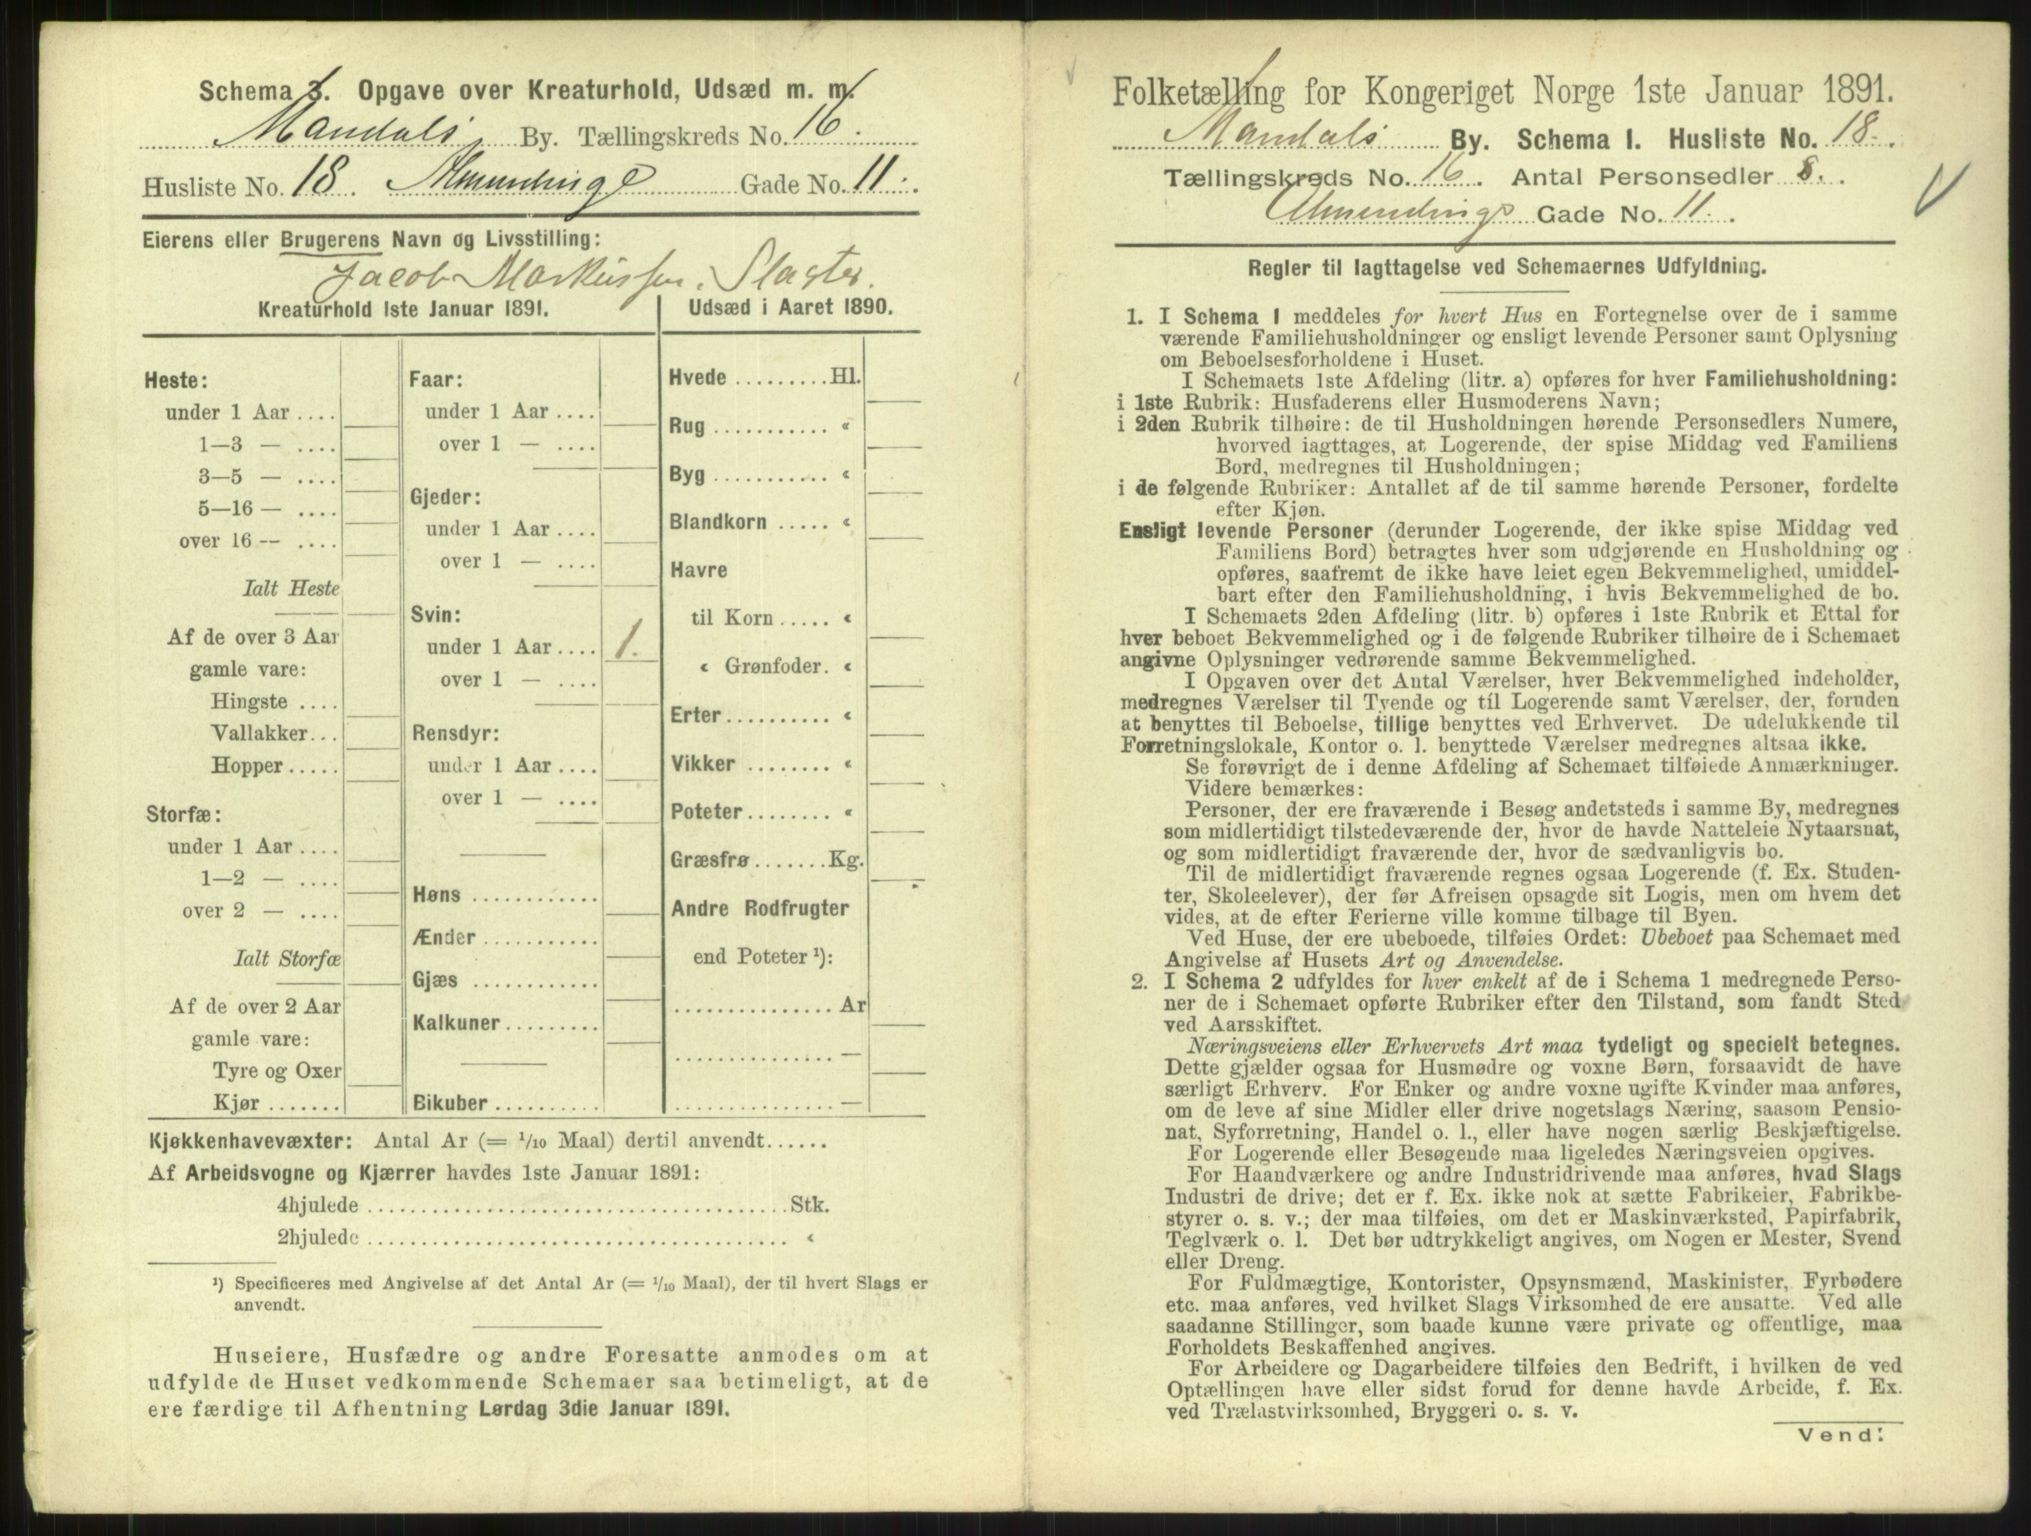 Schema 3. Opgave over Kreaturhold, Udsæd m. m.
Mandals By. Tællingskreds No. 16.
Husliste No. 18. Almendinge Gade No. 11.
Eierens eller Brugerens Navn og Livsstilling:
Jacob Markussen, Slagter.
Kreaturhold 1ste Januar 1891.
Heste:
under 1 Aar ....
1—3 — ....
3—5 — ....
5—16 — ....
over 16 — ....
Ialt Heste
Af de over 3 Aar
gamle vare:
Hingste ....
Vallakker...
Hopper.....
Storfæ:
under 1 Aar ....
1—2 — ....
over 2 — ....
Ialt Storfæ
Af de over 2 Aar
gamle vare:
Tyre og Oxer
Kjør .......
Faar:
under 1 Aar ....
over 1 — ....
Gjeder:
under 1 Aar ....
over 1 — ....
Svin:
under 1 Aar .... 1.
over 1 — ....
Rensdyr:
under 1 Aar ....
over 1 — ....
Høns ............
Ænder ...........
Gjæs ............
Kalkuner.........
Bikuber ..........
Udsæd i Aaret 1890.
Hvede .........Hl.
Rug ........... «
Byg ........... «
Blandkorn ..... «
Havre
til Korn ..... «
« Grønfoder. «
Erter.......... «
Vikker ........ «
Poteter........ «
Græsfrø.......Kg.
Andre Rodfrugter
end Poteter ¹):
...............Ar
...............—
...............—
Kjøkkenhavevæxter: Antal Ar (= 1/10 Maal) dertil anvendt......
Af Arbeidsvogne og Kjærrer havdes 1ste Januar 1891:
4hjulede ......................................Stk.
2hjulede ...................................... «
¹) Specificeres med Angivelse af det Antal Ar (= 1/10 Maal), der til hvert Slags er
anvendt.
Huseiere, Husfædre og andre Foresatte anmodes om at
udfylde de Huset vedkommende Schemaer saa betimeligt, at de
ere færdige til Afhentning Lørdag 3die Januar 1891.
Folketælling for Kongeriget Norge 1ste Januar 1891.
Mandals By. Schema 1. Husliste No. 18.
Tællingskreds No. 16. Antal Personsedler 8.
Almendings Gade No. 11.
Regler til Iagttagelse ved Schemaernes Udfyldning.
1. I Schema 1 meddeles for hvert Hus en Fortegnelse over de i samme
værende Familiehusholdninger og ensligt levende Personer samt Oplysning
om Beboelsesforholdene i Huset.
I Schemaets 1ste Afdeling (litr. a) opføres for hver Familiehusholdning:
i 1ste Rubrik: Husfaderens eller Husmoderens Navn;
i 2den Rubrik tilhøire: de til Husholdningen hørende Personsedlers Numere,
hvorved iagttages, at Logerende, der spise Middag ved Familiens
Bord, medregnes til Husholdningen;
i de følgende Rubriker: Antallet af de til samme hørende Personer, fordelte
efter Kjøn.
Ensligt levende Personer (derunder Logerende, der ikke spise Middag ved
Familiens Bord) betragtes hver som udgjørende en Husholdning og
opføres, saafremt de ikke have leiet egen Bekvemmelighed, umiddel-
bart efter den Familiehusholdning, i hvis Bekvemmelighed de bo.
I Schemaets 2den Afdeling (litr. b) opføres i 1ste Rubrik et Ettal for
hver beboet Bekvemmelighed og i de følgende Rubriker tilhøire de i Schemaet
angivne Oplysninger vedrørende samme Bekvemmelighed.
I Opgaven over det Antal Værelser, hver Bekvemmelighed indeholder,
medregnes Værelser til Tyende og til Logerende samt Værelser, der, foruden
at benyttes til Beboelse, tillige benyttes ved Erhvervet. De udelukkende til
Forretningslokale, Kontor o. l. benyttede Værelser medregnes altsaa ikke.
Se forøvrigt de i denne Afdeling af Schemaet tilføiede Anmærkninger.
Videre bemærkes:
Personer, der ere fraværende i Besøg andetsteds i samme By, medregnes
som midlertidigt tilstedeværende der, hvor de havde Natteleie Nytaarsnat,
og som midlertidigt fraværende der, hvor de sædvanligvis bo.
Til de midlertidigt fraværende regnes ogsaa Logerende (f. Ex. Studen-
ter, Skoleelever), der før Afreisen opsagde sit Logis, men om hvem det
vides, at de efter Ferierne ville komme tilbage til Byen.
Ved Huse, der ere ubeboede, tilføies Ordet: Ubeboet paa Schemaet med
Angivelse af Husets Art og Anvendelse.
2. I Schema 2 udfyldes for hver enkelt af de i Schema 1 medregnede Perso-
ner de i Schemaet opførte Rubriker efter den Tilstand, som fandt Sted
ved Aarsskiftet.
Næringsveiens eller Erhvervets Art maa tydeligt og specielt betegnes.
Dette gjælder ogsaa for Husmødre og voxne Børn, forsaavidt de have
særligt Erhverv. For Enker og andre voxne ugifte Kvinder maa anføres,
om de leve af sine Midler eller drive nogetslags Næring, saasom Pensio-
nat, Syforretning, Handel o. l., eller have nogen særlig Beskjæftigelse.
For Logerende eller Besøgende maa ligeledes Næringsveien opgives.
For Haandværkere og andre Industridrivende maa anføres, hvad Slags
Industri de drive; det er f. Ex. ikke nok at sætte Fabrikeier, Fabrikbe-
styrer o. s. v.; der maa tilføies, om det er Maskinværksted, Papirfabrik,
Teglværk o. l. Det bør udtrykkeligt angives, om Nogen er Mester, Svend
eller Dreng.
For Fuldmægtige, Kontorister, Opsynsmænd, Maskinister, Fyrbødere
etc. maa anføres, ved hvilket Slags Virksomhed de ere ansatte. Ved alle
saadanne Stillinger, som baade kunne være private og offentlige, maa
Forholdets Beskaffenhed angives.
For Arbeidere og Dagarbeidere tilføies den Bedrift, i hvilken de ved
Optællingen have eller sidst forud for denne havde Arbeide, f. Ex.
ved Trælastvirksomhed, Bryggeri o. s. v.
Vend!